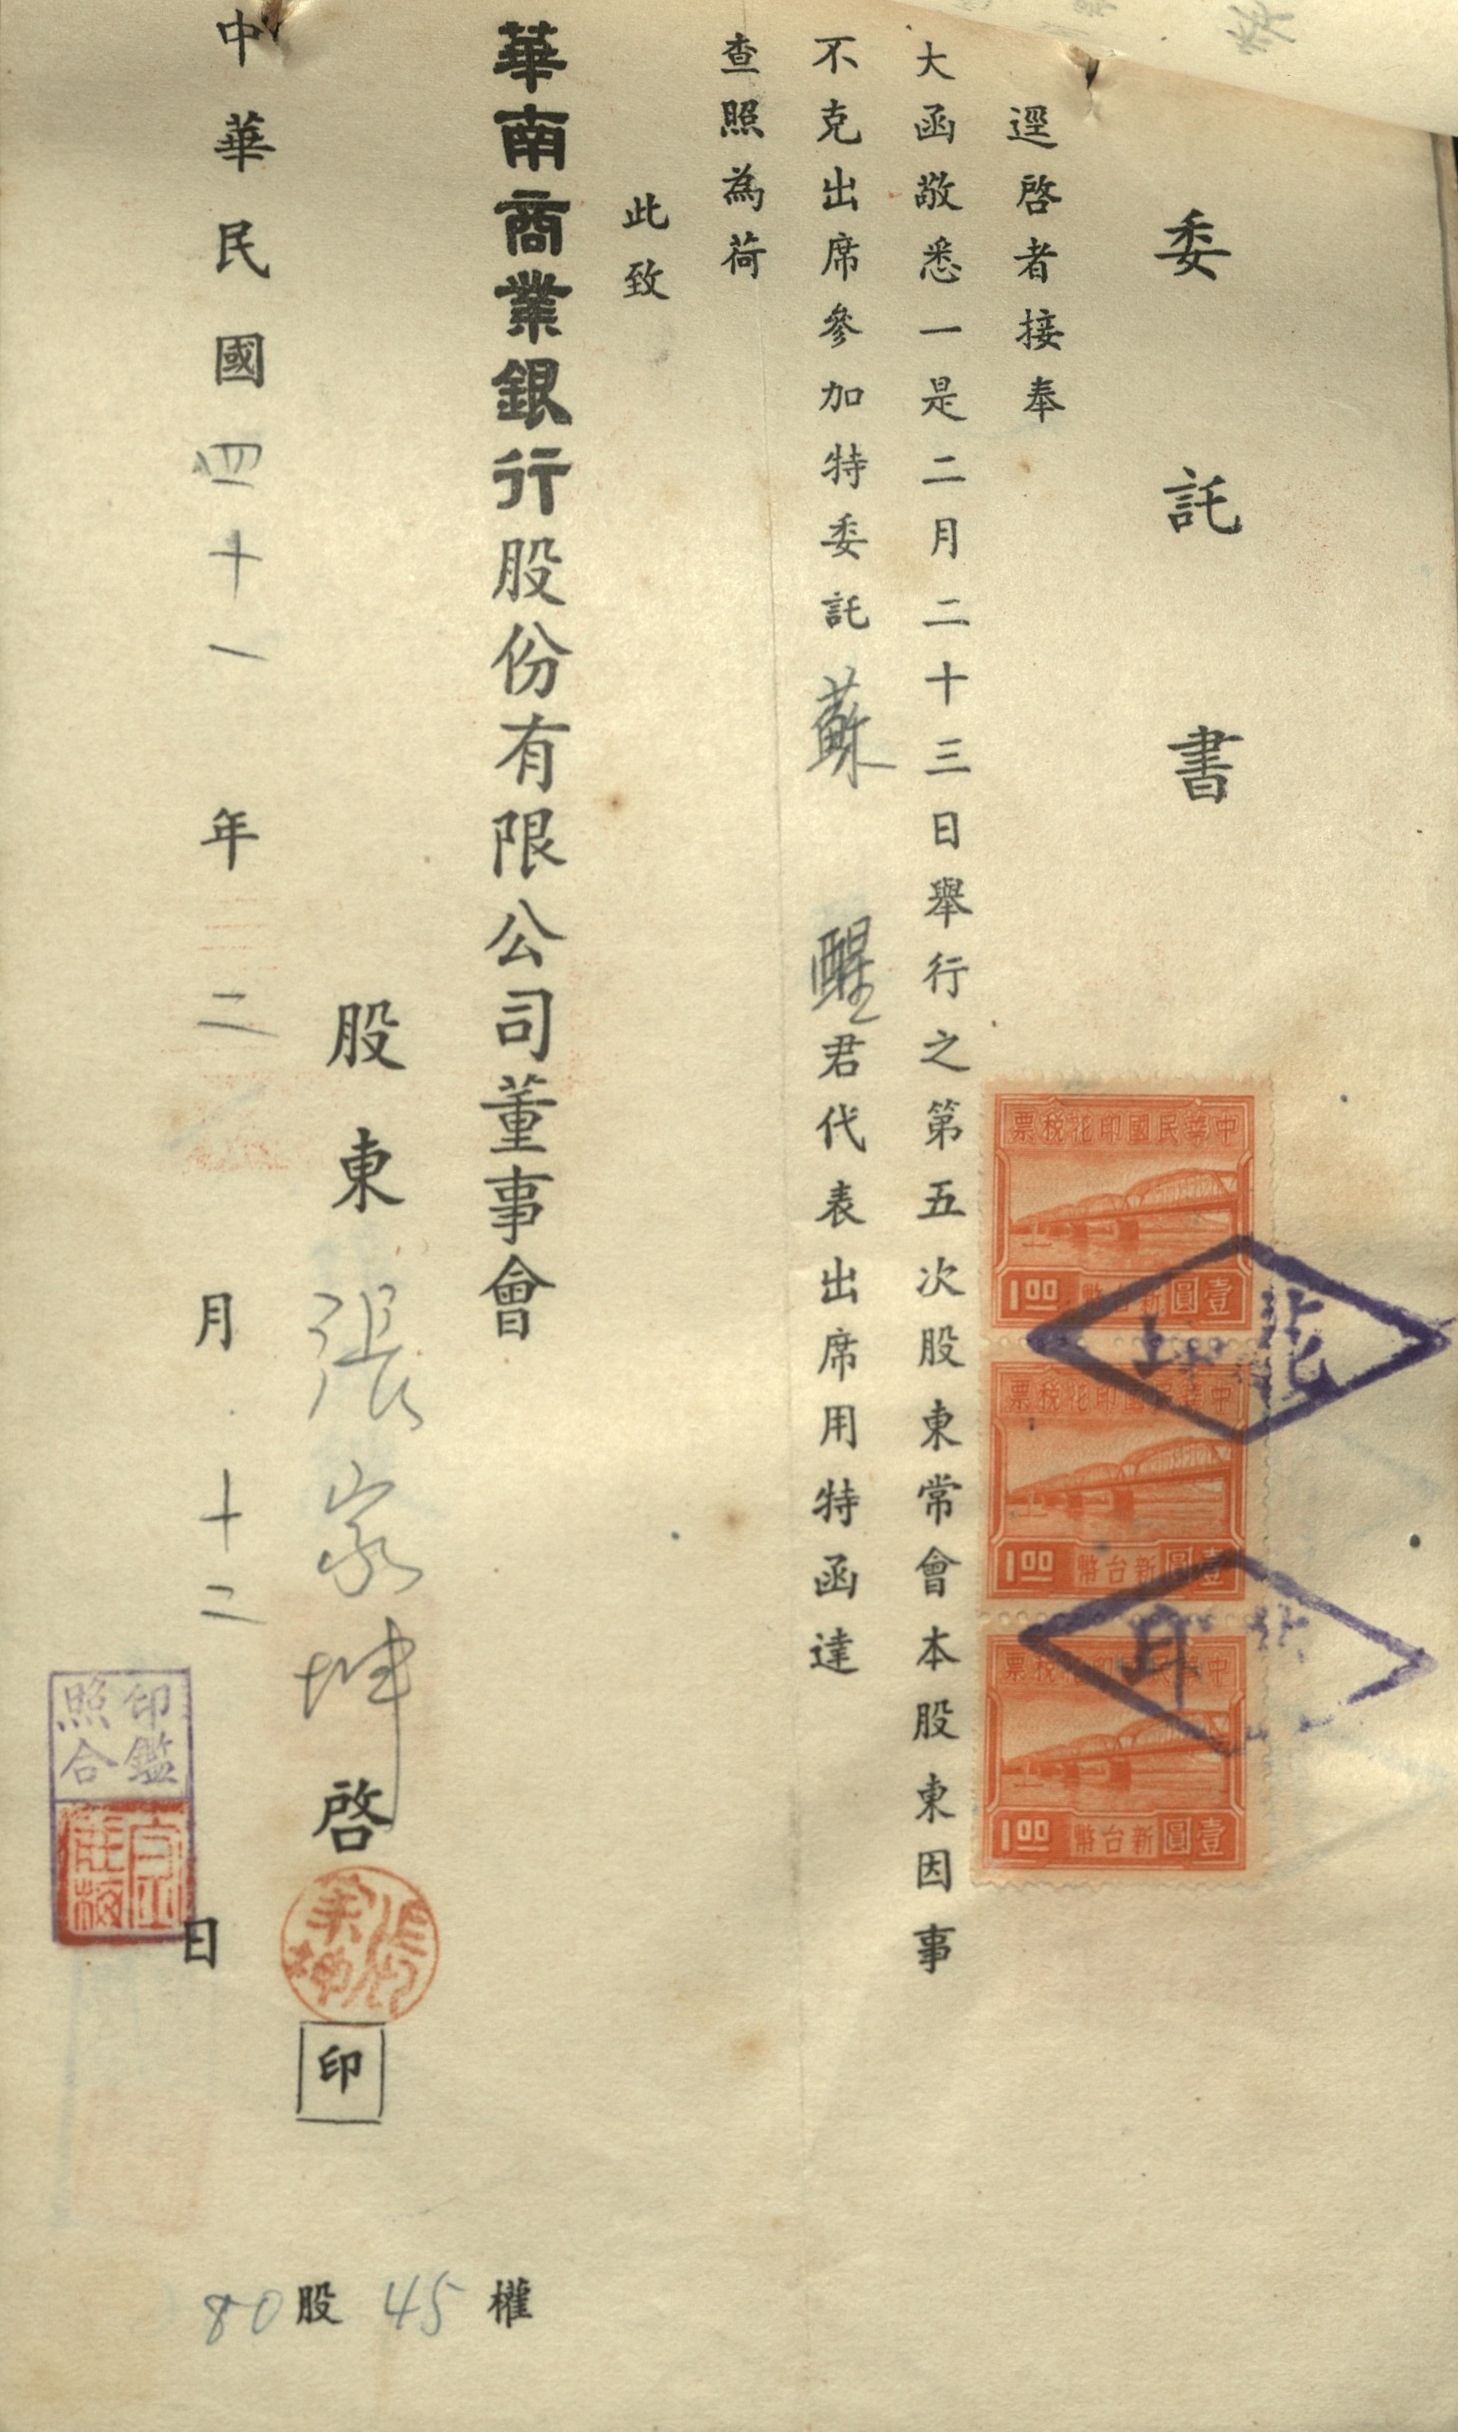 委託書
逕啓者接奉
大函敬悉一是二月二十三日舉行之第五次股東常會本股東因事
不克出席參加特委託蘇醒君代表出席用特函達
查照為荷
此致
華南商業銀行股份有限公司董事會
股東張家坤啓
印
中華民國四十一年二月十二日
80股45權
中華民國印花稅票
1.00 新台幣壹圓
中華民國印花稅票
1.00 新台幣壹圓
中華民國印花稅票
1.00 新台幣壹圓
印鑑
照合